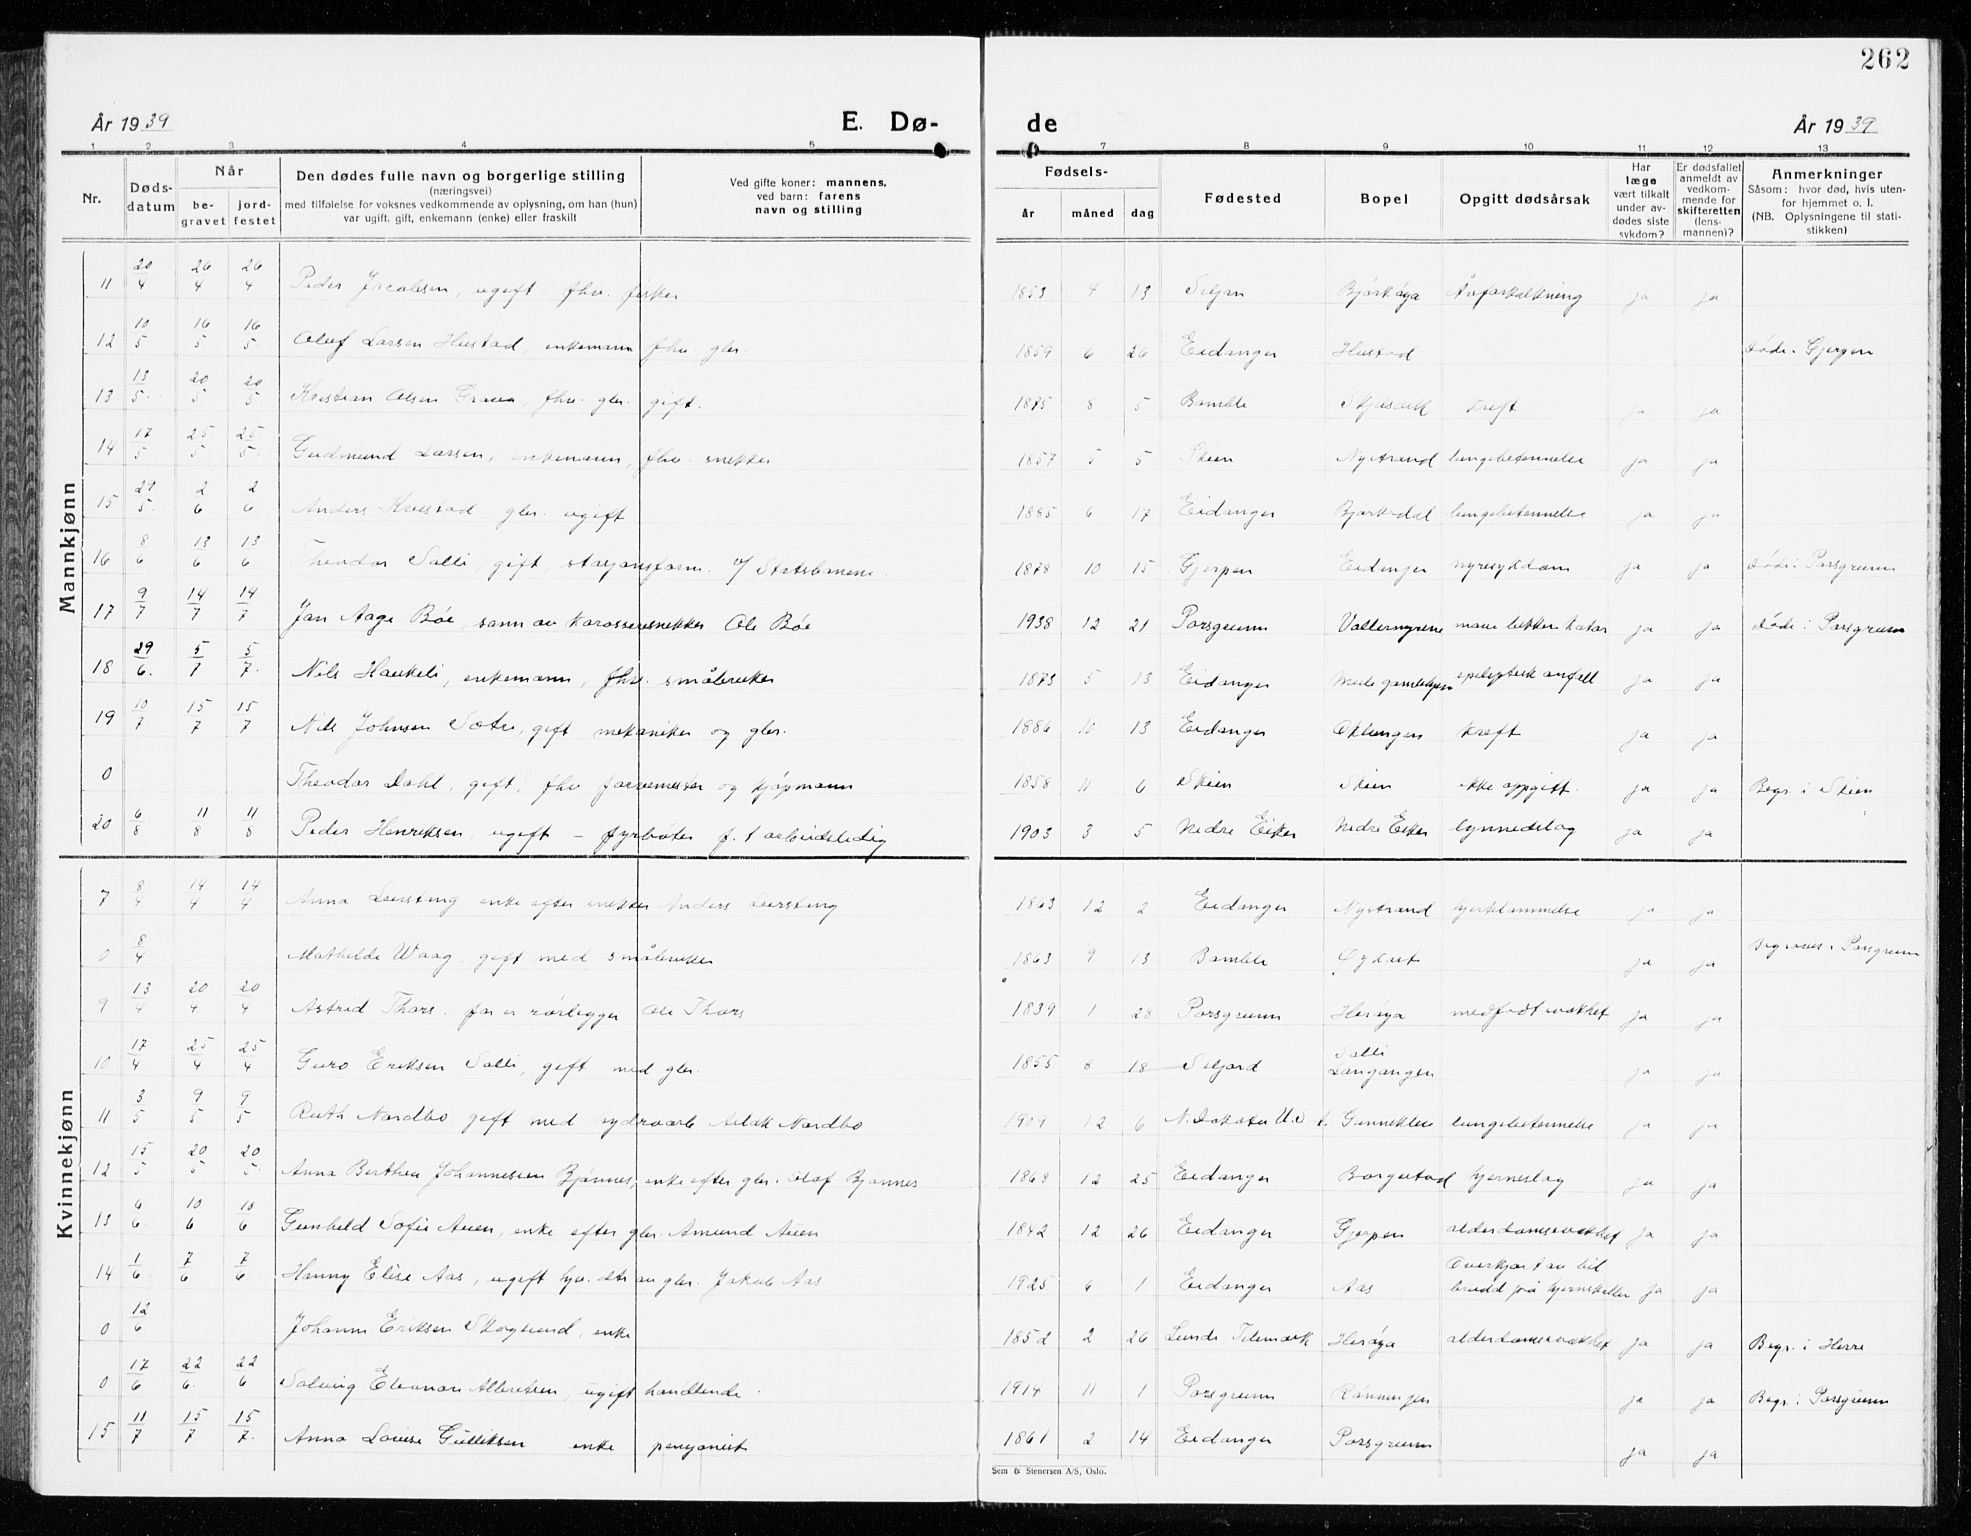 262
År 1939 E. Dø- de År 1939
1 2 3 4 5 7 8 9 10 11 12 13
Nr. Døds-datum Når be-gravet jord-festet
Den dødes fulle navn og borgerlige stilling
(næringsvei)
med tilføielse for voksnes vedkommende av oplysning, om han (hun)
var ugift, gift, enkemann (enke) eller fraskilt
Ved gifte koner: mannens,
ved barn: farens
navn og stilling
Fødsels- år måned dag
Fødested Bopel Opgitt dødsårsak
Har læge vært tilkalt under av-dødes siste sykdom?
Er dødsfallet anmeldt av vedkom-mende for skifteretten (lens-mannen)?
Anmerkninger
Såsom: hvor død, hvis uten-
for hjemmet o. l.
(NB. Oplysningene til stati-
stikken)
Mannkjønn
11 20/4 26/4 26/4 Peder Jacobsen, ugift fhv. fisker 1853 4 13 Seljan Bjørkøya Åreforkalkning ja ja
12 10/5 16/5 16/5 Oluf Larsen Hustad, enkemann fhv. gbr. 1859 6 26 Eidanger Hustad døde i Gjerpen
13 13/5 20/5 20/5 Kristian Olsen fhv. gbr. gift. 1875 8 5 Bamble kreft ja ja
14 17/5 25/5 25/5 Gudmund Larsen, enkemann, fhv. snekker 1857 5 5 Skien Nystrand lungebetennelse ja ja
15 29/5 2/6 2/6 Anders gbr. ugift 1885 6 17 Eidanger Bjørkedal lungebetennelse ja ja
16 8/6 13/6 13/6 Theodor Salli, gift, stasjonsform. v/ Statsbanene. 1878 10 15 Gjerpen Eidanger nyresykdom ja ja døde i Porsgrunn
17 9/7 14/7 14/7 Jan Aage Bøe, sønn av karosserisnekker Ole Bøe 1938 12 21 Porsgrunn Vallermyrene mave bekken katar ja ja døde i Porsgrunn
18 29/6 5/7 5/7 Nils Haukeli, enkemann, fhv. småbruker 1873 5 13 Eidanger epileptisk anfell ja ja
19 10/7 15/7 15/7 Nils Johnsen Sætre, gift mekaniker og gbr. 1886 10 13 Eidanger Oklungen kreft ja ja
0 Theodor Dahl, gift, fhv. farvemester og kjøpmann 1858 11 6 Skien Skien ikke oppgitt. ja ja Begr. i Skien
20 6/8 11/8 11/8 Peder Henriksen, ugift – fyrbøter f. t arbeidsledig 1903 3 5 Nedre Eiker Nedre Eiker lynnedslag ja ja
Kvinnekjønn
7 8/4 14/4 14/4 Anna Leersteng enke efter snekker Anders Leersteng 1863 12 2 Eidanger Nystrand hjertelammelse ja ja
0 8/4 Mathilde Waag, gift med småbruker 1863 9 13 Bamble ja ja Begraves i Porsgrunn
9 13/4 20/4 20/4 Astrid Thors. far er rørlegger Ole Thors 1839 1 28 Porsgrunn Herøya medfødt svakhet ja ja
10 17/4 25/4 25/4 Guro Eriksen Salli, gift med gbr. 1855 8 18 Seljord Salli Langangen ja ja
11 3/5 9/5 9/5 Ruth Nordbø, gift med hydroarb Aslak Nordbø 1909 12 6 N. Dakota U.S. A. Gunneklev lungebetennelse ja ja
12 15/5 20/5 20/5 Anna Berthea Johannessen Bjønnes, enke efter gbr. Olaf Bjønnes 1868 12 25 Eidanger Borgestad hjerneslag ja ja
13 6/6 10/6 10/6 Gunhild Sofie Auen, enke efter gbr. Amund Auen 1842 12 26 Eidanger Gjerpen alderdomssvakhet ja ja
14 1/6 7/6 7/6 Hanny Elise Aas, ugift hjv. dtr av gbr. Jakob Aas 1925 6 1 Eidanger Aas Overkjørt av bil brudd på hjerneskallen ja ja
0 12/6 Johanne Eriksen Skogsund, enke 1852 2 26 Lunde Telemark Herøya alderdomssvakhet ja ja Begr. i Herre
0 17/6 22/6 22/6 Solveig Eleonore Albretsen, ugift handlende. 1914 11 1 Porsgrunn Rønningen ja ja Begr. i Porsgrunn
15 11/7 15/7 15/7 Anna Lovise Gulliksen enke pensjonist 1861 2 14 Eidanger Porsgrunn ja ja
Sem & Stenersen A/S, Oslo.